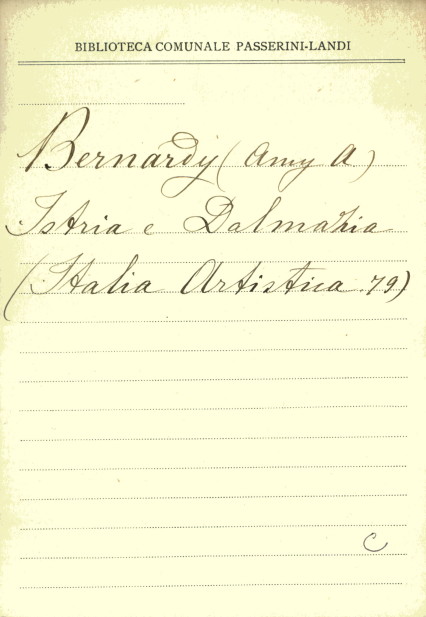 BIBLIOTECA COMUNALE PASSERINI-LANDI
Bernardy (Amy A)
Istria e Dalmazia
(Italia Artistica 79)
C